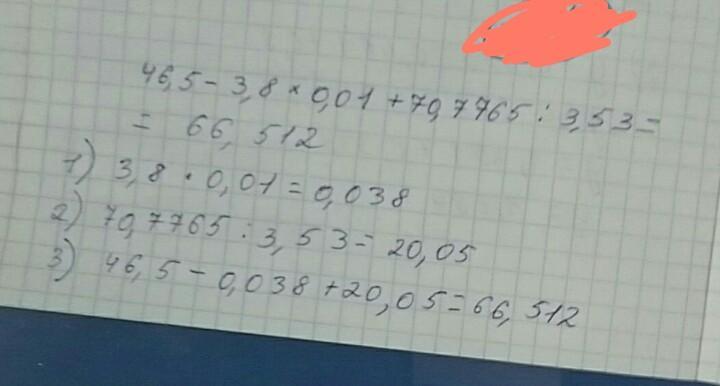 46,5 - 3,8 × 0,01 + 70,7765 : 3,53 =
= 66,512
1) 3,8 · 0,01 = 0,038
2) 70,7765 : 3,53 = 20,05
3) 46,5 - 0,038 + 20,05 = 66,512